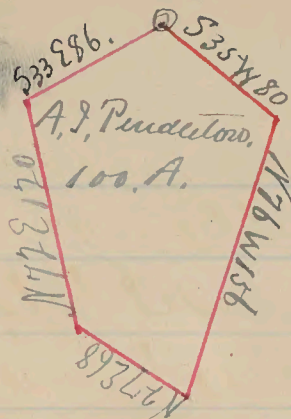 S33E86.
S35W80
A, J, Pendleton.
100, A.
N77E120
N76W156
N27E68